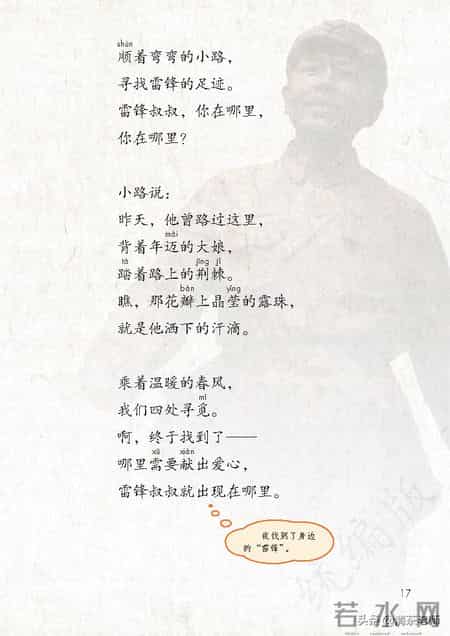 shùn
顺着弯弯的小路，
寻找雷锋的足迹。
雷锋叔叔，你在哪里，
你在哪里？
小路说：
昨天，他曾路过这里，
mài
背着年迈的大娘，
tà jīng jí
踏着路上的荆棘。
bàn yíng
瞧，那花瓣上晶莹的露珠，
就是他洒下的汗滴。
乘着温暖的春风，
mì
我们四处寻觅。
啊，终于找到了——
xū xiàn
哪里需要献出爱心，
雷锋叔叔就出现在哪里。
我找到了身边
的“雷锋”。
统编版
17
若水网